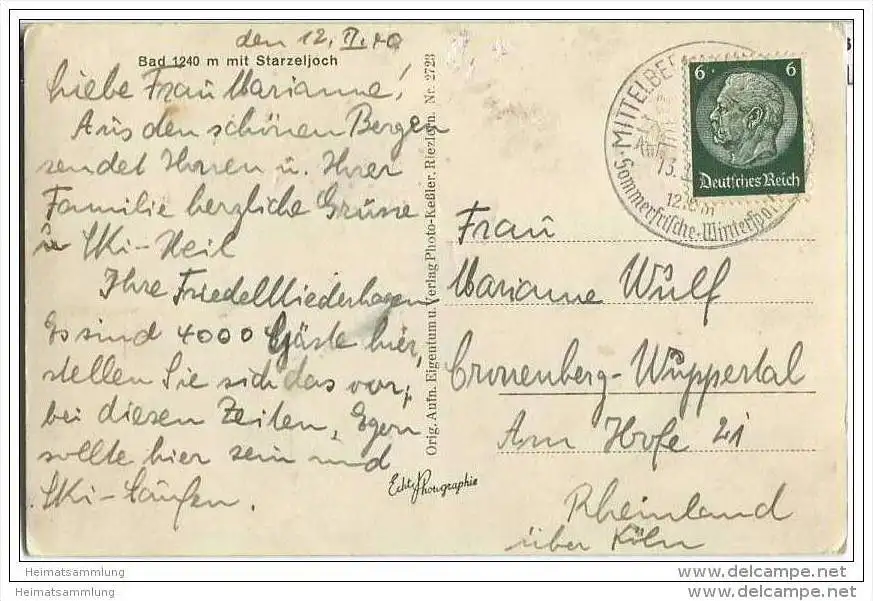 den 12. II. 40
Bad 1240 m mit Starzeljoch
Liebe Frau Marianne!
Aus den schönen Bergen
sendet Ihnen u. Ihrer
Familie herzliche Grüsse
u Ski-Heil
Ihre Friedel Niederhagen
Es sind 4000 Gäste hier,
stellen Sie sich das vor,
bei diesen Zeiten, Egon
sollte hier sein und
Ski-laufen.
Orig. Aufn. Eigentum u. Verlag Photo-Keßler, Riezlern. Nr. 2723
Echte Photographie
MITTELBE
13.
12
m
Sommerfrische-Winterspo
6 6
Deutsches Reich
Frau
Marianne Wulf
Cronenberg-Wuppertal
Am Hofe 21
Rheinland
über Köln
Heimatsammlung
Heimatsammlung
www.delcampe.net
www.delcampe.net